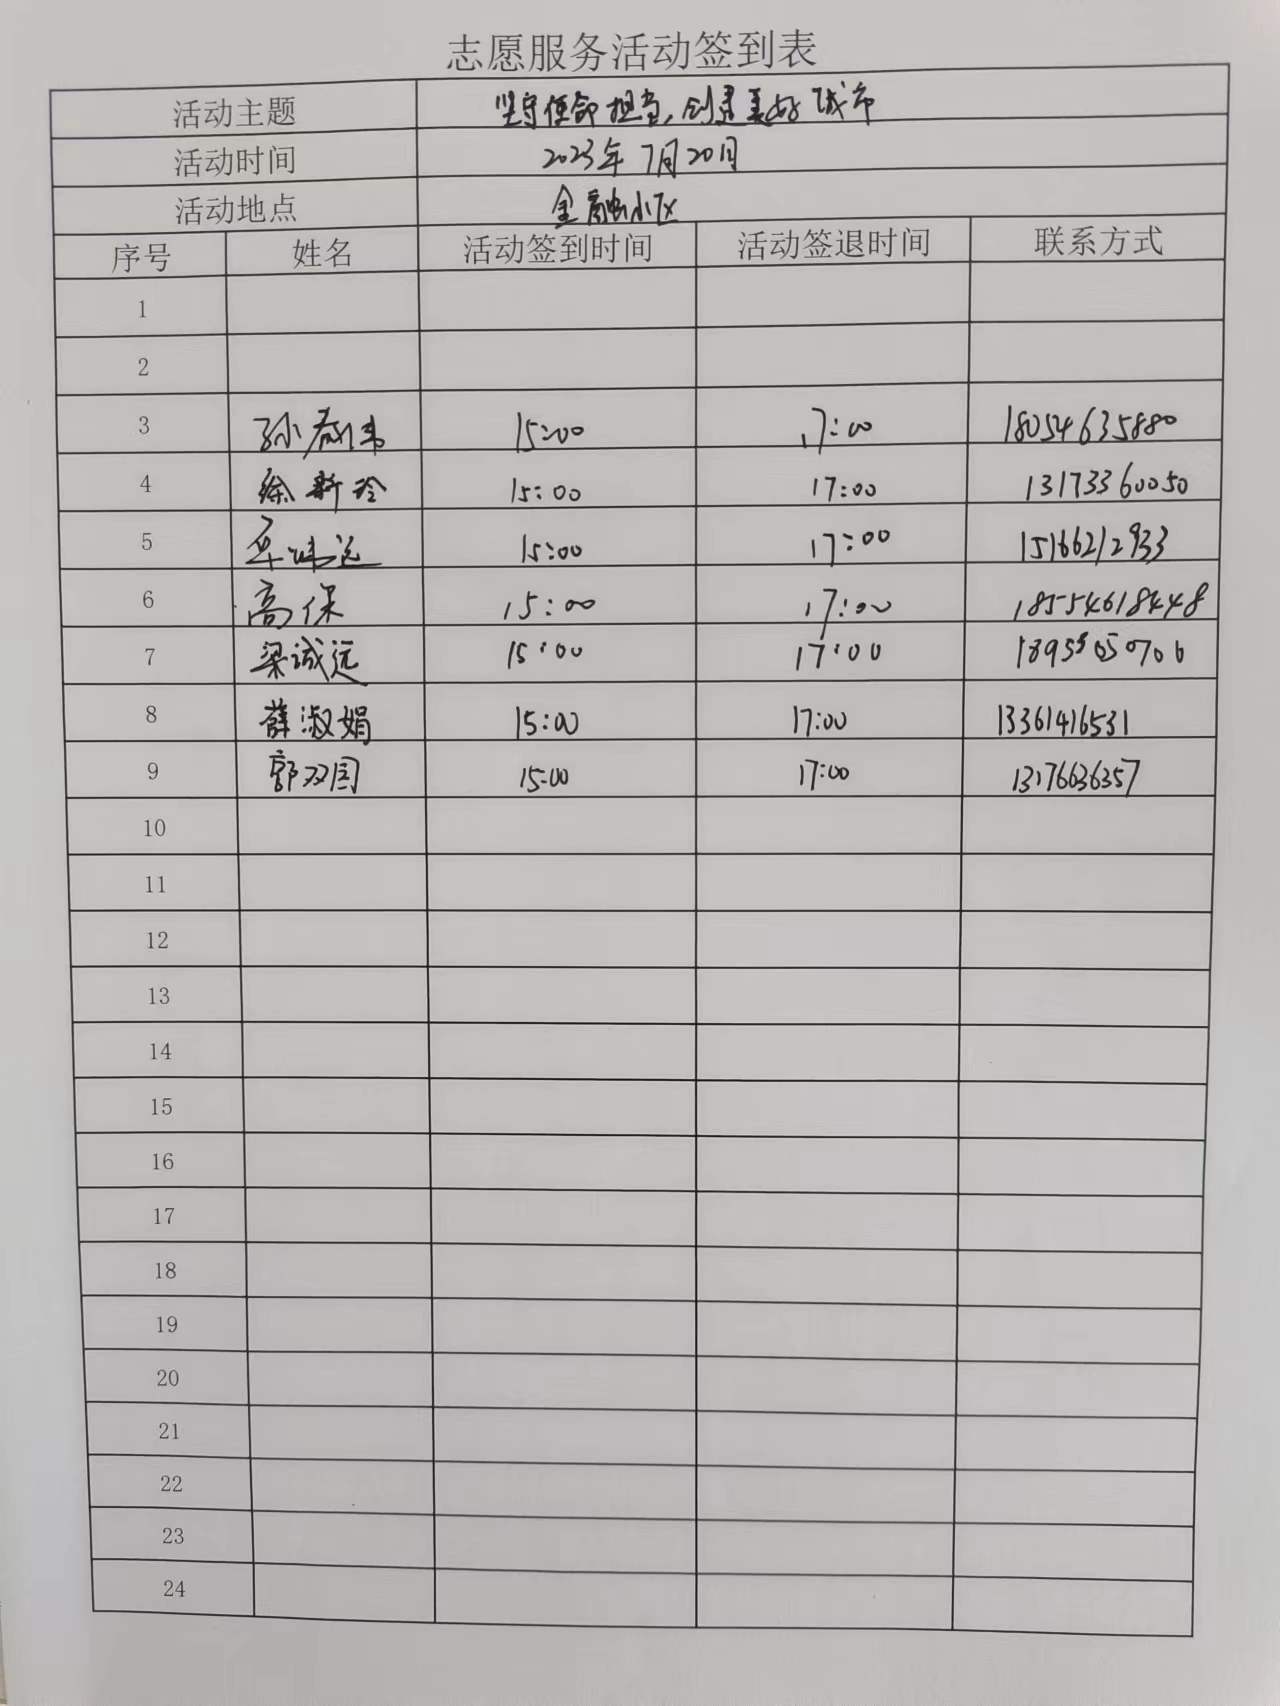 志愿服务活动签到表
活动主题 坚守使命担当,创建美好城市
活动时间 2023年7月20日
活动地点 金融小区
序号 姓名 活动签到时间 活动签退时间 联系方式
1
2
3 孙 15:00 17:00 18054635880
4 徐新玲 15:00 17:00 13173360050
5 15:00 17:00 15166212933
6 高保 15:00 17:00 18554618448
7 梁诚远 15:00 17:00
8 薛淑娟 15:00 17:00 13361416531
9 郭双国 15:00 17:00 13176636357
10
11
12
13
14
15
16
17
18
19
20
21
22
23
24